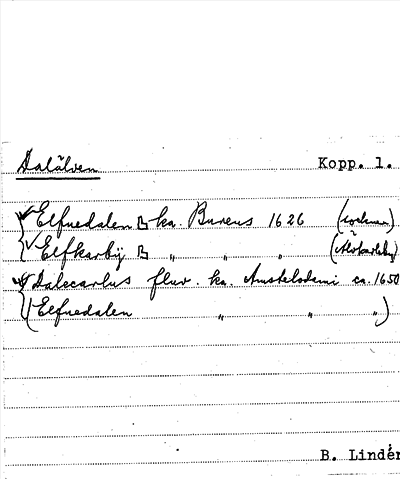 Dalälven Kopp. l.
Elfuedalen ka. Bureus 1626 (socknar)
Elfkarby " " " (Älvkarleby)
Dalecarlus fluv. ka. Amstelodemi ca. 1650
(Elfuedalen " " ")
B. Lindén